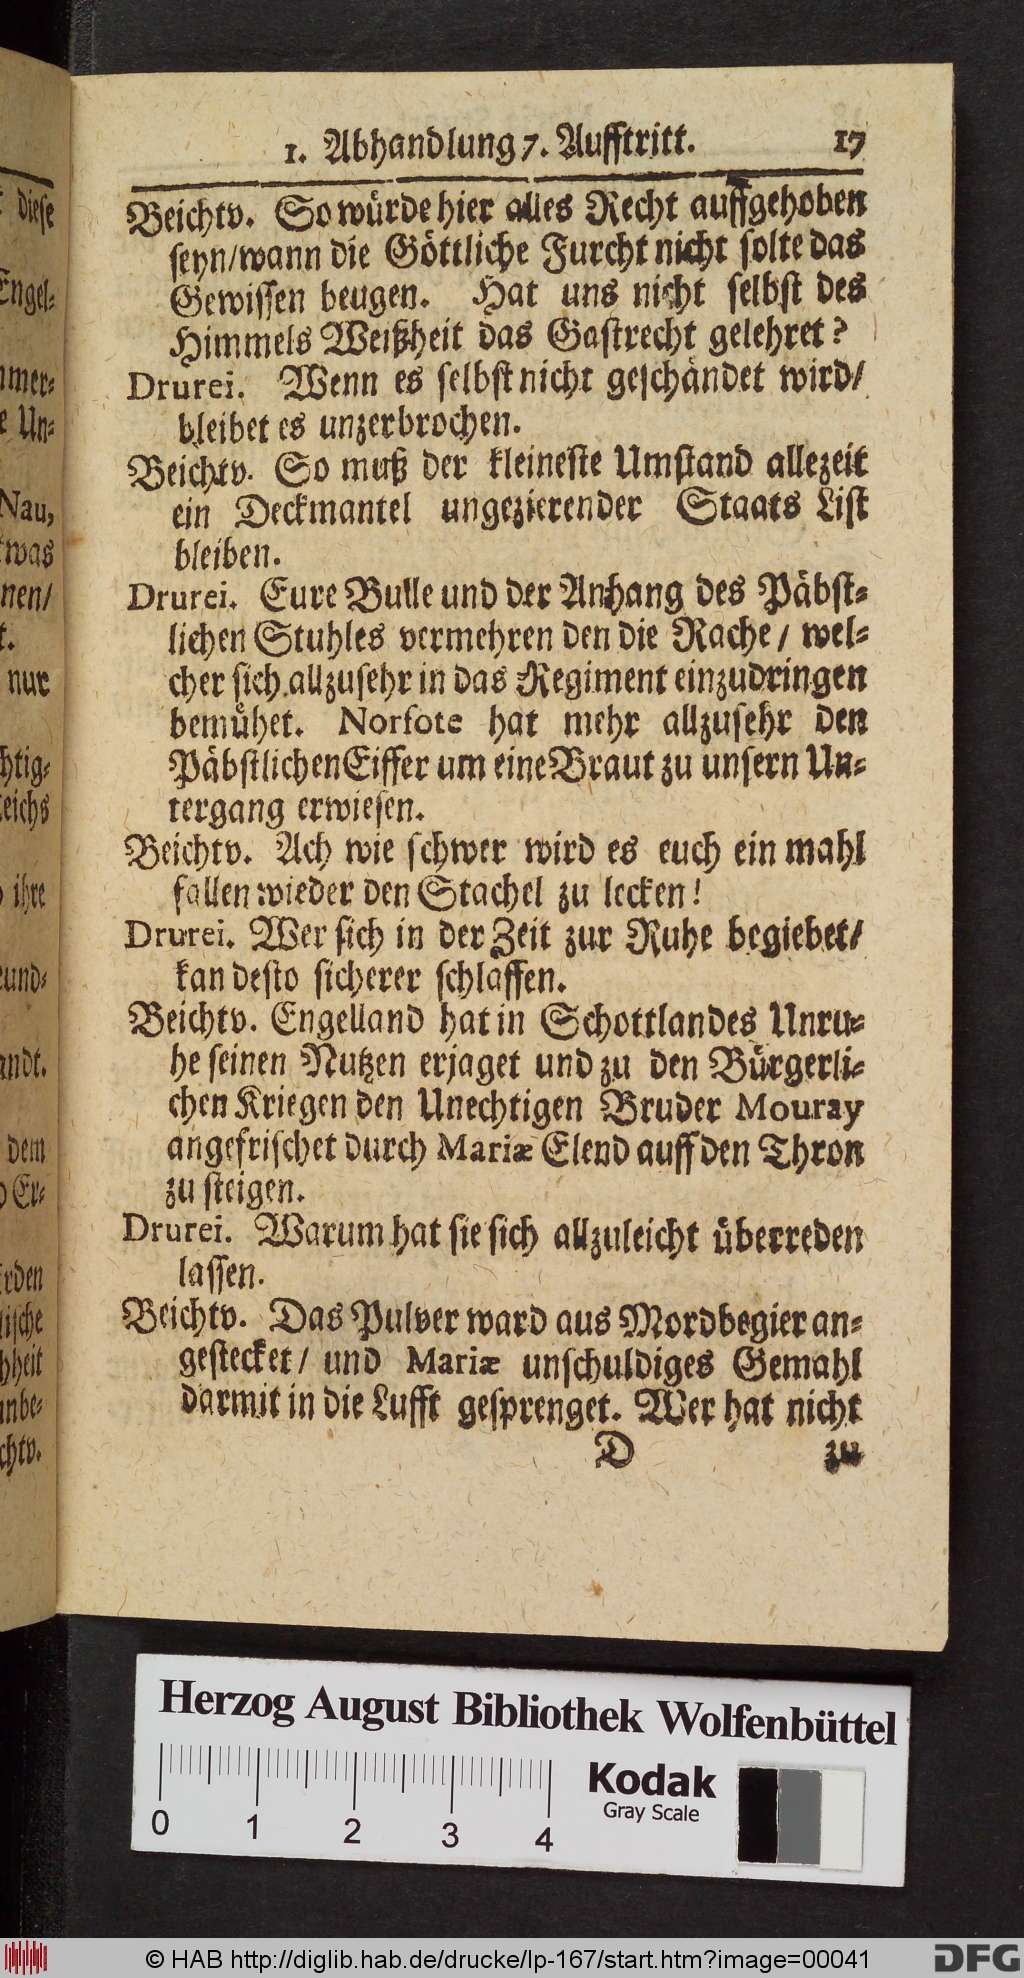 1. Abhandlung 7. Aufftritt. 17
Beichtv. So würde hier alles Recht auffgehoben
seyn/wann die Göttliche Furcht nicht solte das
Gewissen beugen. Hat uns nicht selbst des
Himmels Weißheit das Gastrecht gelehret?
Drurei. Wenn es selbst nicht geschändet wird/
bleibet es unzerbrochen.
Beichtv. So muß der kleineste Umstand allezeit
ein Deckmantel ungezierender Staats List
bleiben.
Drurei. Eure Bulle und der Anhang des Päbst-
lichen Stuhles vermehren den die Rache / wel-
cher sich allzusehr in das Regiment einzudringen
bemühet. Norfote hat mehr allzusehr den
Päbstlichen Eiffer um eine Braut zu unsern Un-
tergang erwiesen.
Beichtv. Ach wie schwer wird es euch ein mahl
fallen wieder den Stachel zu lecken!
Drurei. Wer sich in der Zeit zur Ruhe begiebet/
kan desto sicherer schlaffen.
Beichtv. Engelland hat in Schottlandes Unru-
he seinen Nutzen erjaget und zu den Bürgerli-
chen Kriegen den Unechtigen Bruder Mouray
angefrischet durch Mariæ Elend auff den Thron
zu steigen.
Drurei. Warum hat sie sich allzuleicht überreden
lassen.
Beichtv. Das Pulver ward aus Mordbegier an-
gestecket / und Mariæ unschuldiges Gemahl
darmit in die Lufft gesprenget. Wer hat nicht
D zu
diese
Engel-
mer-
e Un-
Nau,
was
nen/
t.
nur
htig-
eichs
ihre
und-
andt.
dem
Er-
rden
ische
hheit
unbe-
chtv.
Herzog August Bibliothek Wolfenbüttel
Kodak
Gray Scale
0 1 2 3 4
© HAB http://diglib.hab.de/drucke/lp-167/start.htm?image=00041
DFG